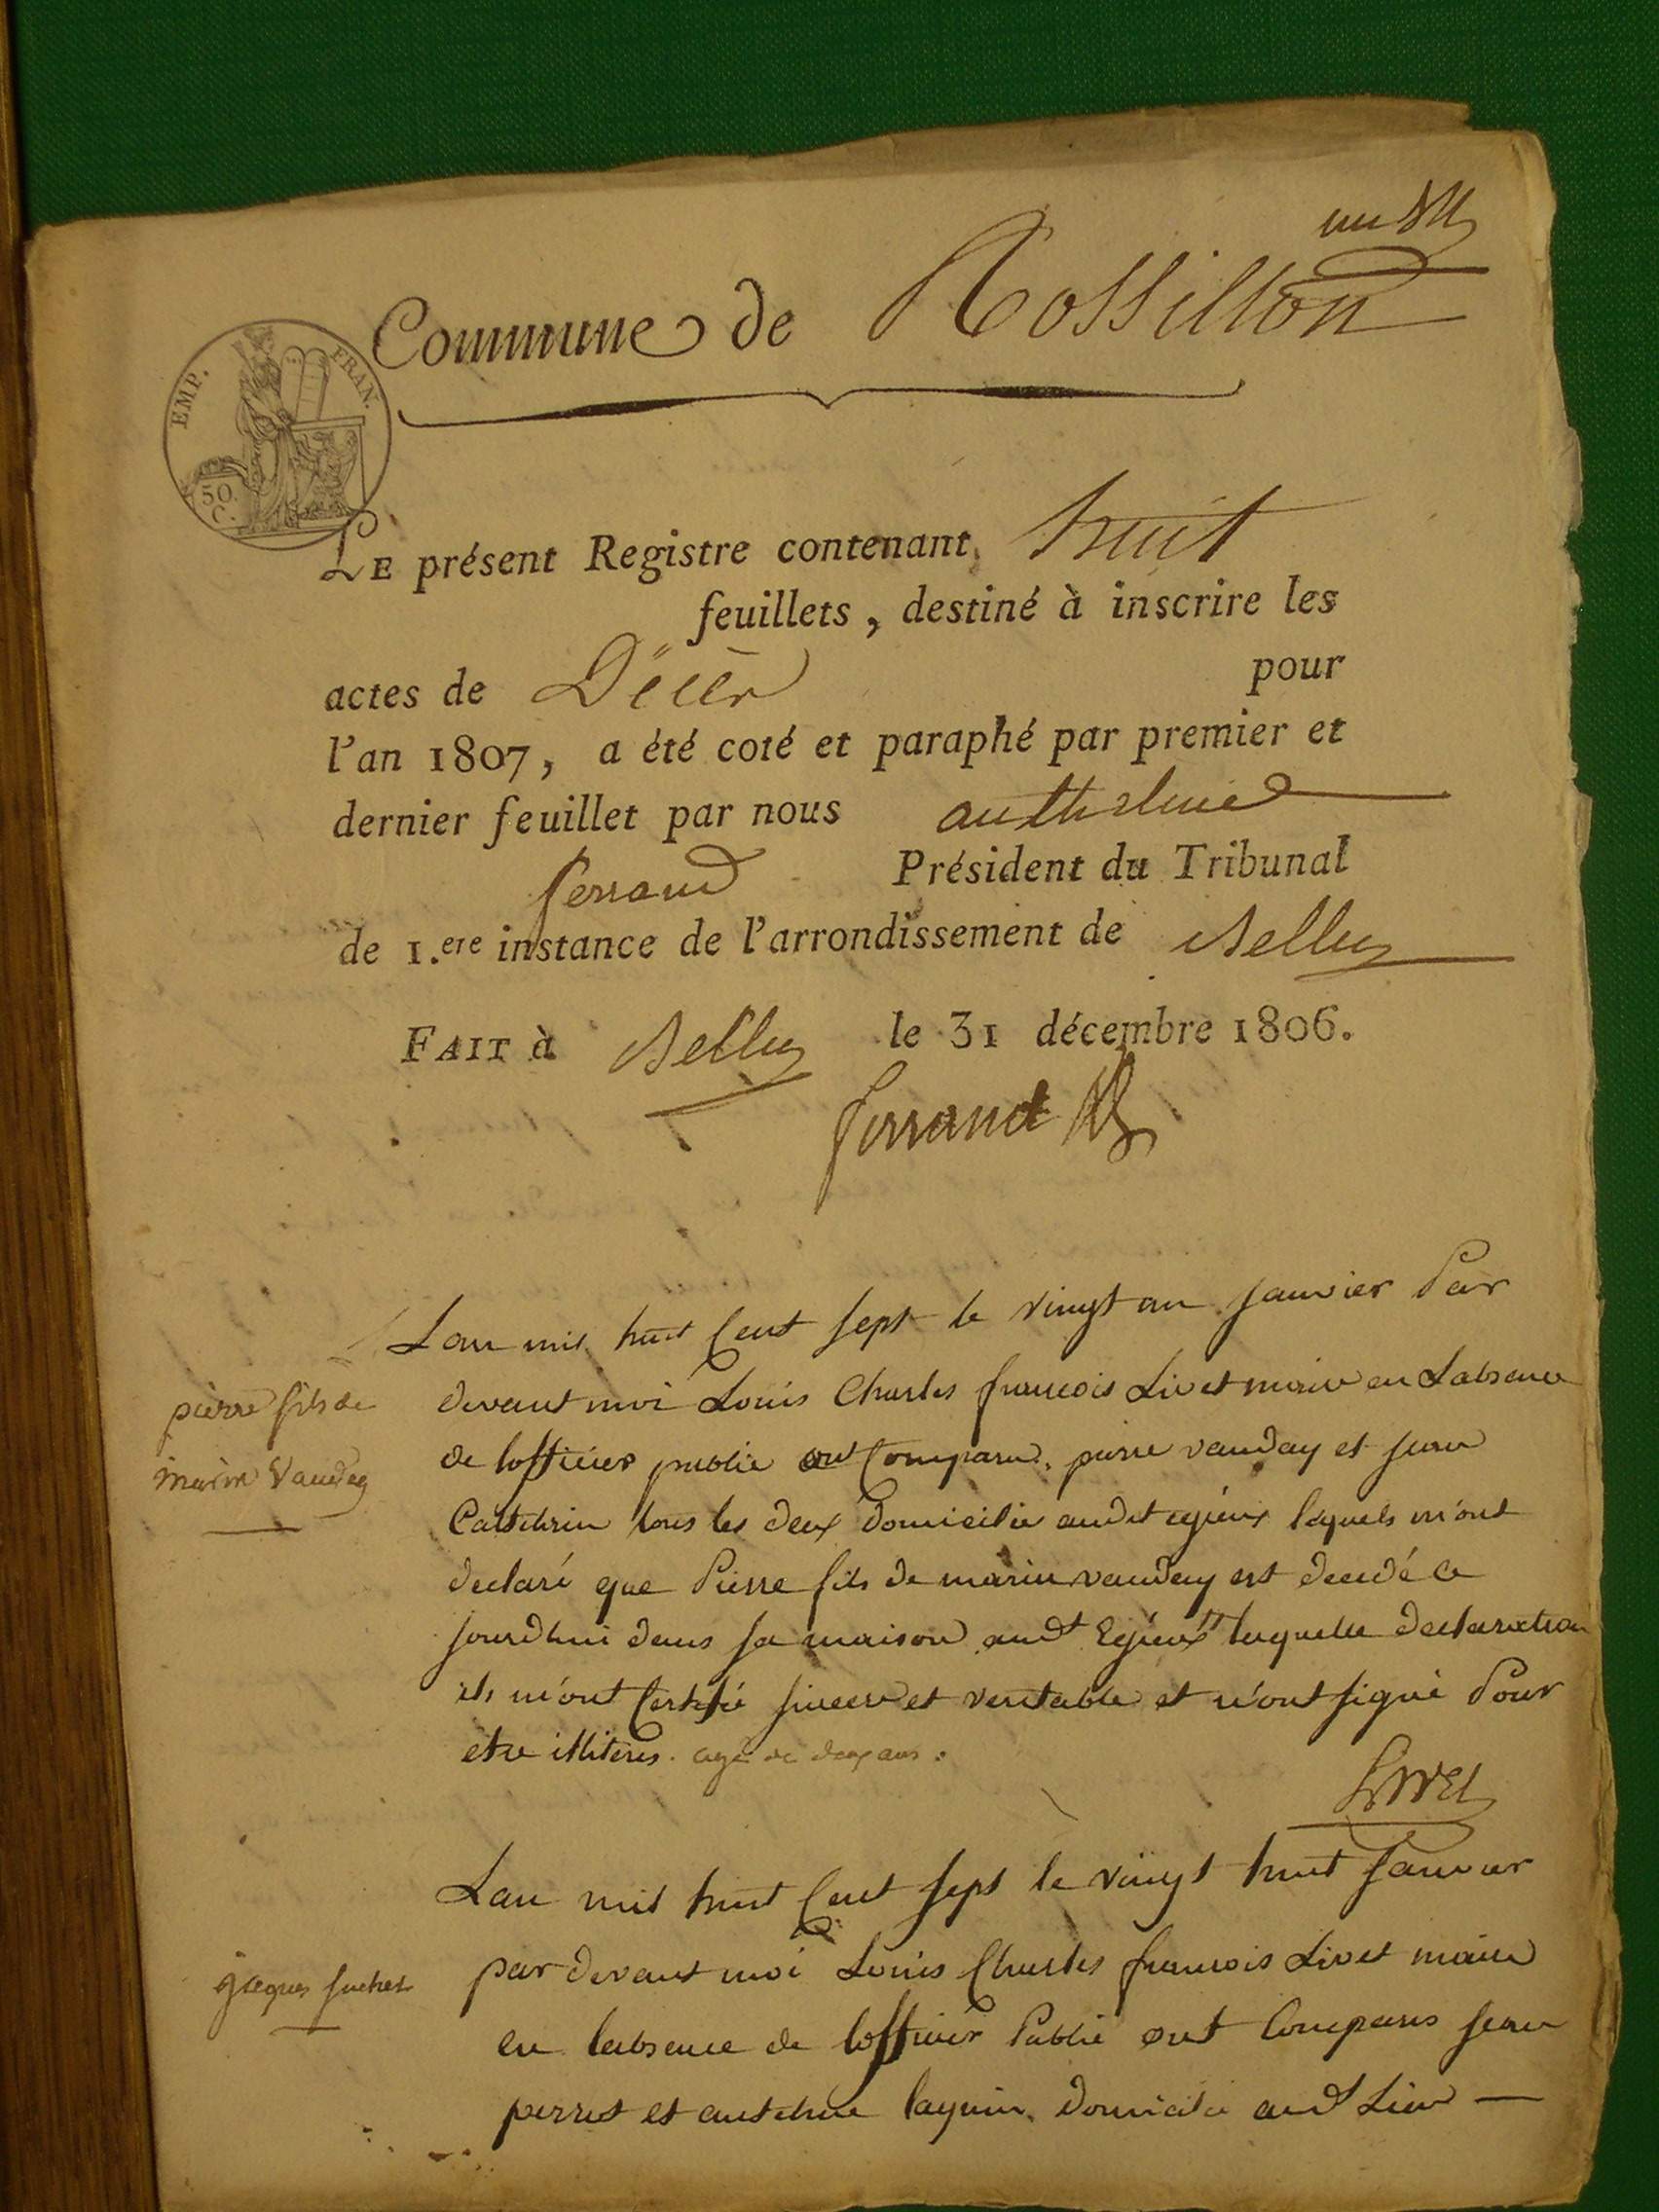 un
Commune de Rossillon
EMP. FRAN.
50 C.
LE présent Registre contenant huit
feuillets, destiné à inscrire les
actes de Décès pour
l'an 1807, a été coté et paraphé par premier et
dernier feuillet par nous anthelme
ferrand Président du Tribunal
de 1.ere instance de l'arrondissement de Belley
FAIT à Belley le 31 décembre 1806.
ferrand
Lan mil huit Cent sept le vingt un Janvier Par
pierre fils de
marin Vauday
devant moi Louis Charles francois Livet maire en Labsence
de lofficier public ont Comparu pierre vauday et jean
tous les deux domicilié audit egieux lequels m'ont
declaré que Pierre fils de marin vauday est decedé ce
jourdhui dans sa maison audt Egieux laquelle declaration
ils m'ont Certifié sincere et veritable et n'ont signé Pour
etre illiteres. agé de deux ans.
Livet
Lan mil huit Cent sept le vingt huit Janvier
jacques suchet
par devant moi Louis Charles francois Livet maire
en labsence de lofficier Public ont Comparus jean
perret et antelme domicilié audt Lieu